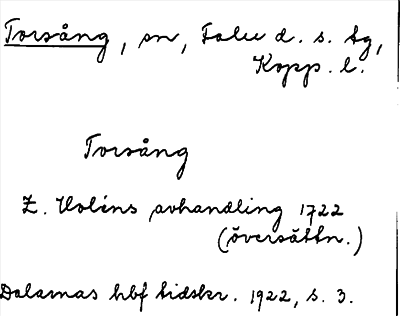 Torsång, sn, Falu d. s. tg,
Kopp. l.
Torsång
Z. Holéns avhandling 1722
(översättn.)
Dalarnas hbf tidskr. 1922, s. 3.